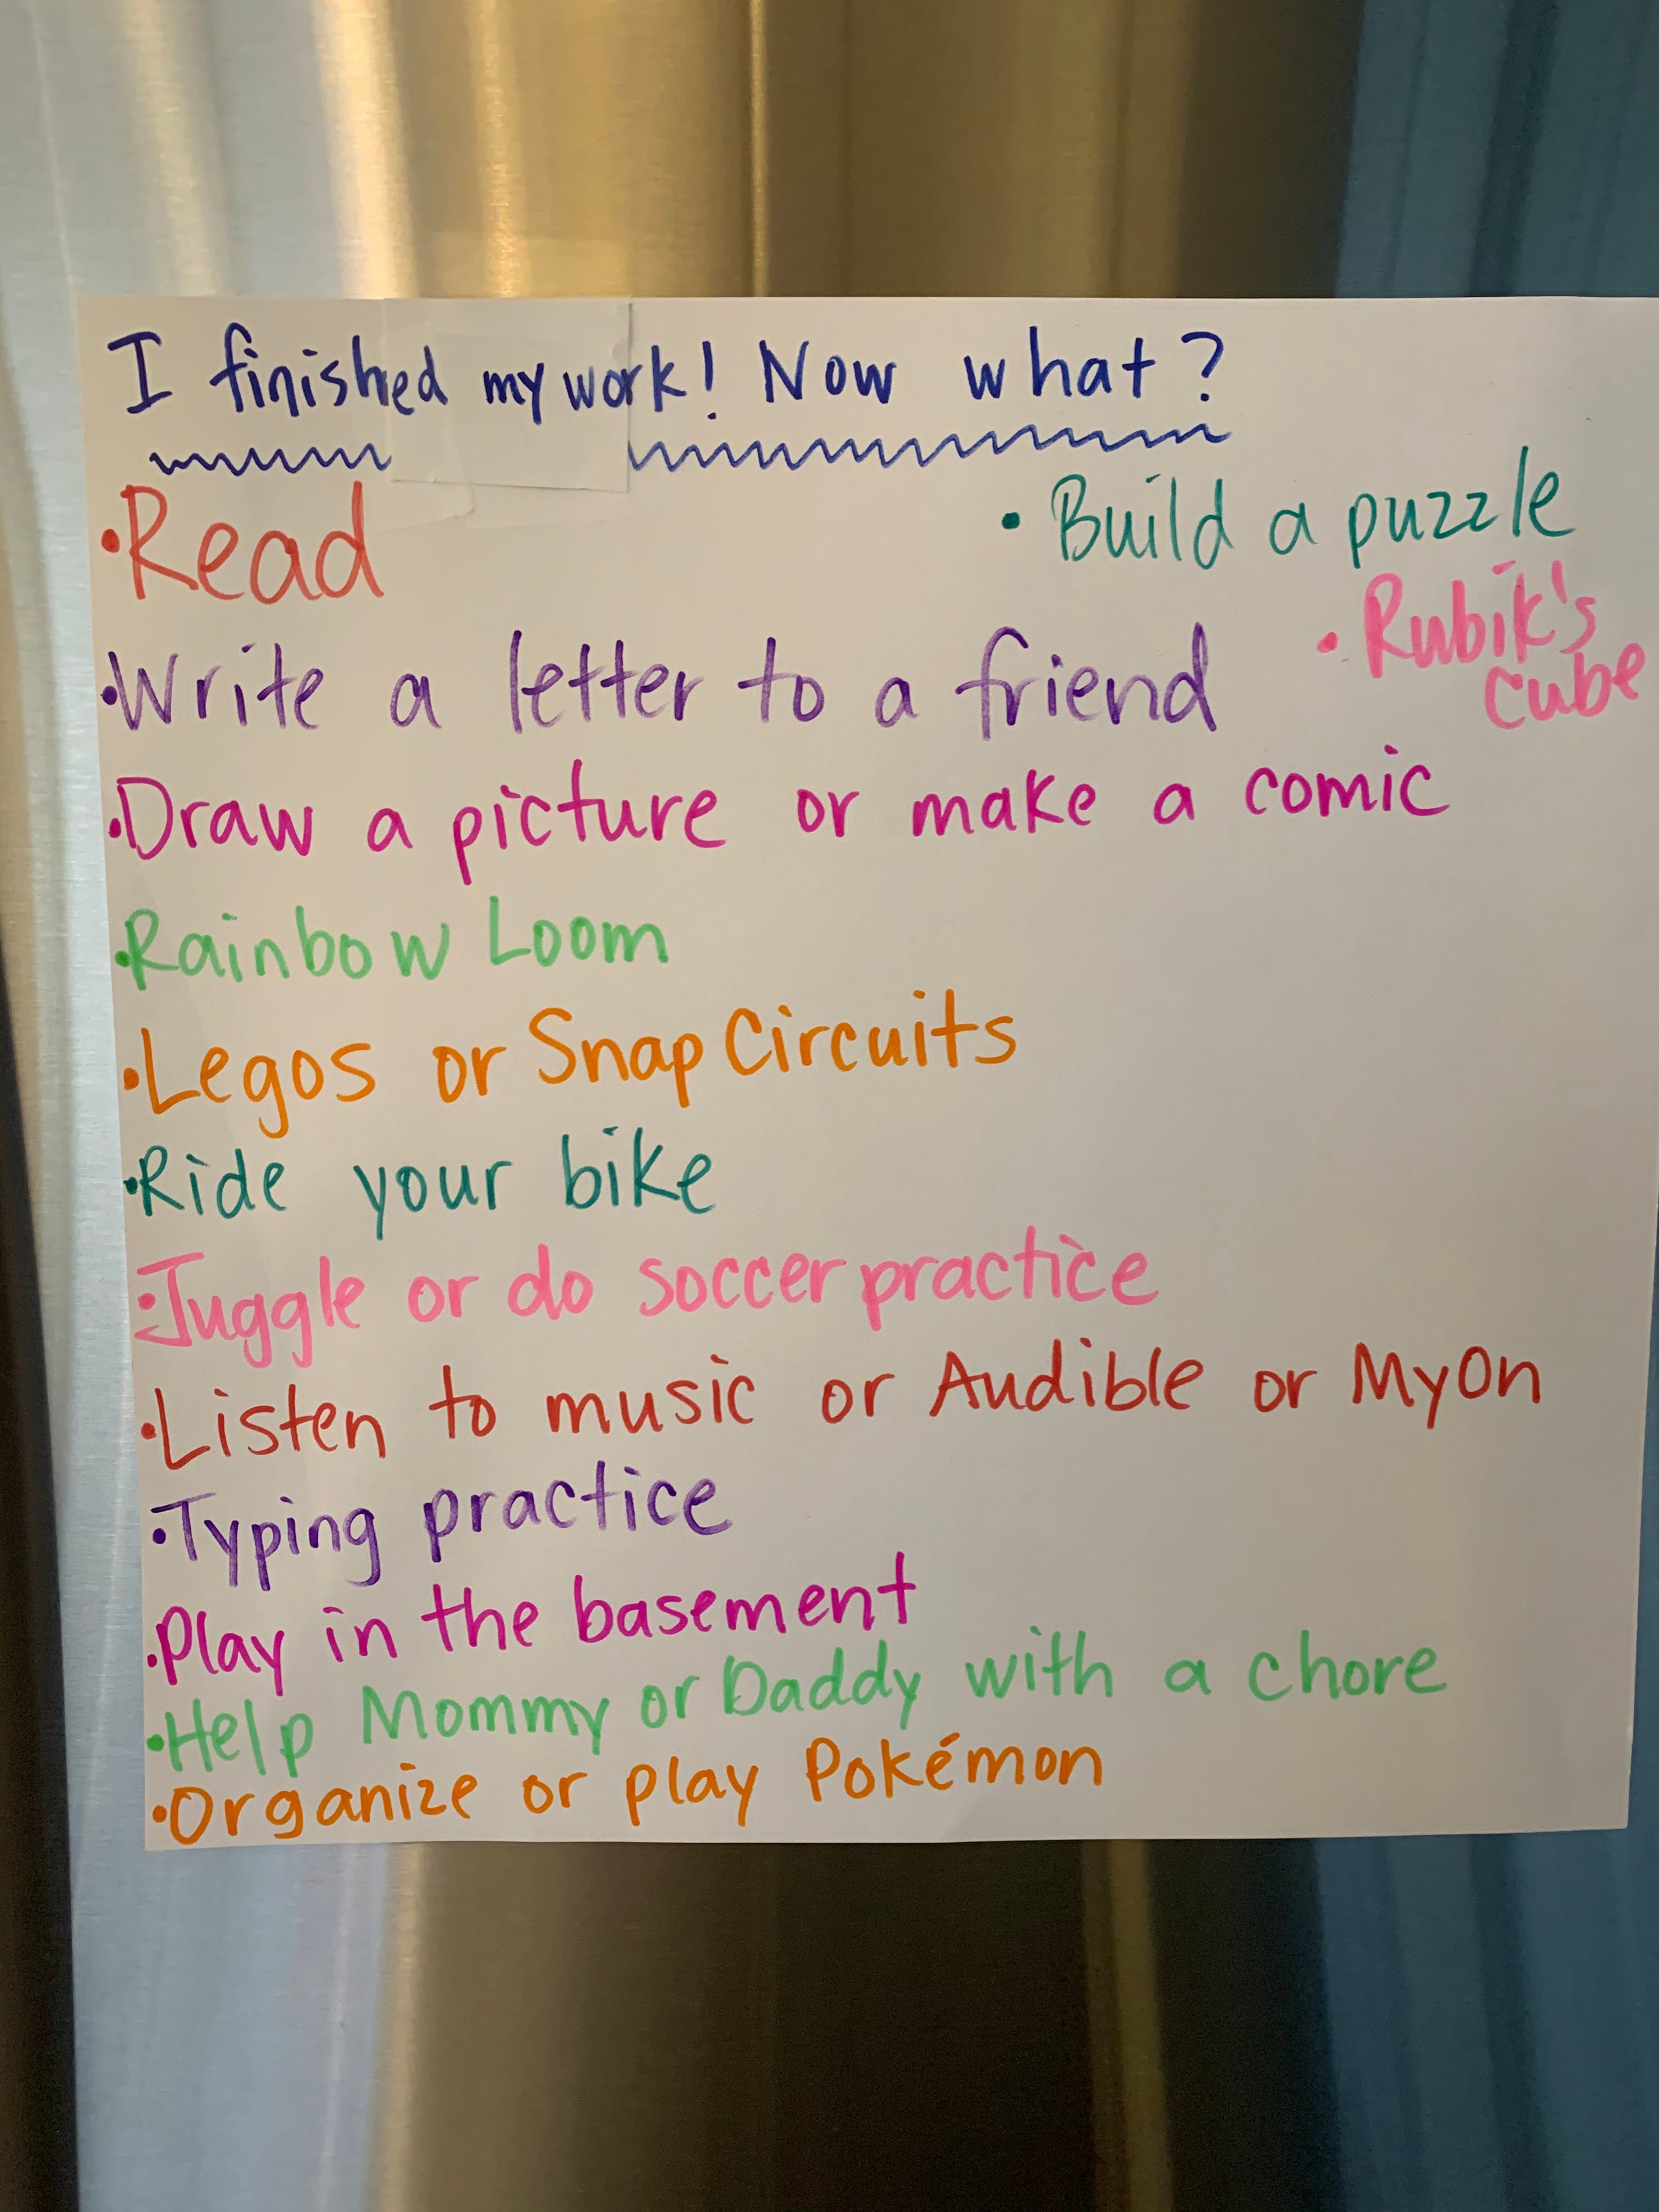 I finished my work! Now what?
• Read
• Build a puzzle
• Rubik's
cube
• Write a letter to a friend
• Draw a picture or make a comic
• Rainbow Loom
• Legos or Snap Circuits
• Ride your bike
• Juggle or do soccer practice
• Listen to music or Audible or MyOn
• Typing practice
• Play in the basement
• Help Mommy or Daddy with a chore
• Organize or play Pokémon